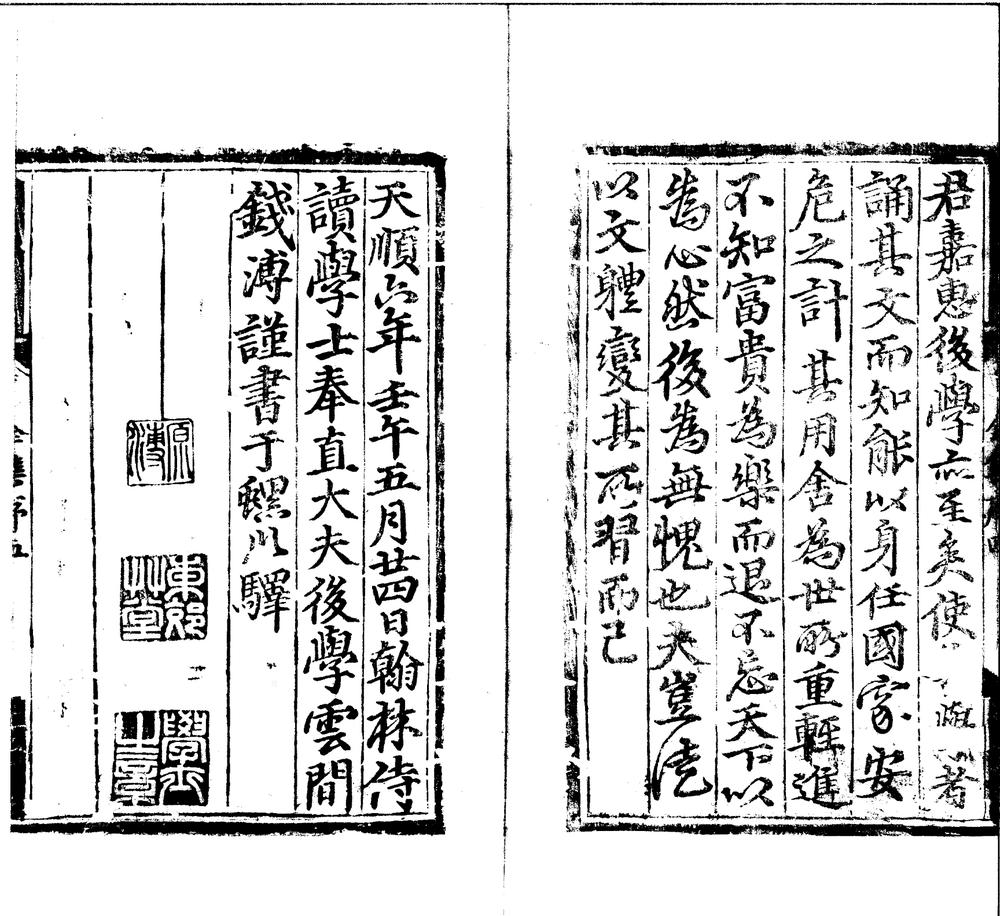 君嘉惠後學亦至矣使者
誦其文而知能以身任國家安
危之計其用舍為世所重輕進
不知富貴為樂而退不忘天下以
為心然後為無愧也夫豈徒
以文體變其所習而已
天順六年壬午五月廿四日翰林侍
讀學士奉直大夫後學雲間
錢溥謹書于螺川驛
原溥
東郭草堂
學士之章